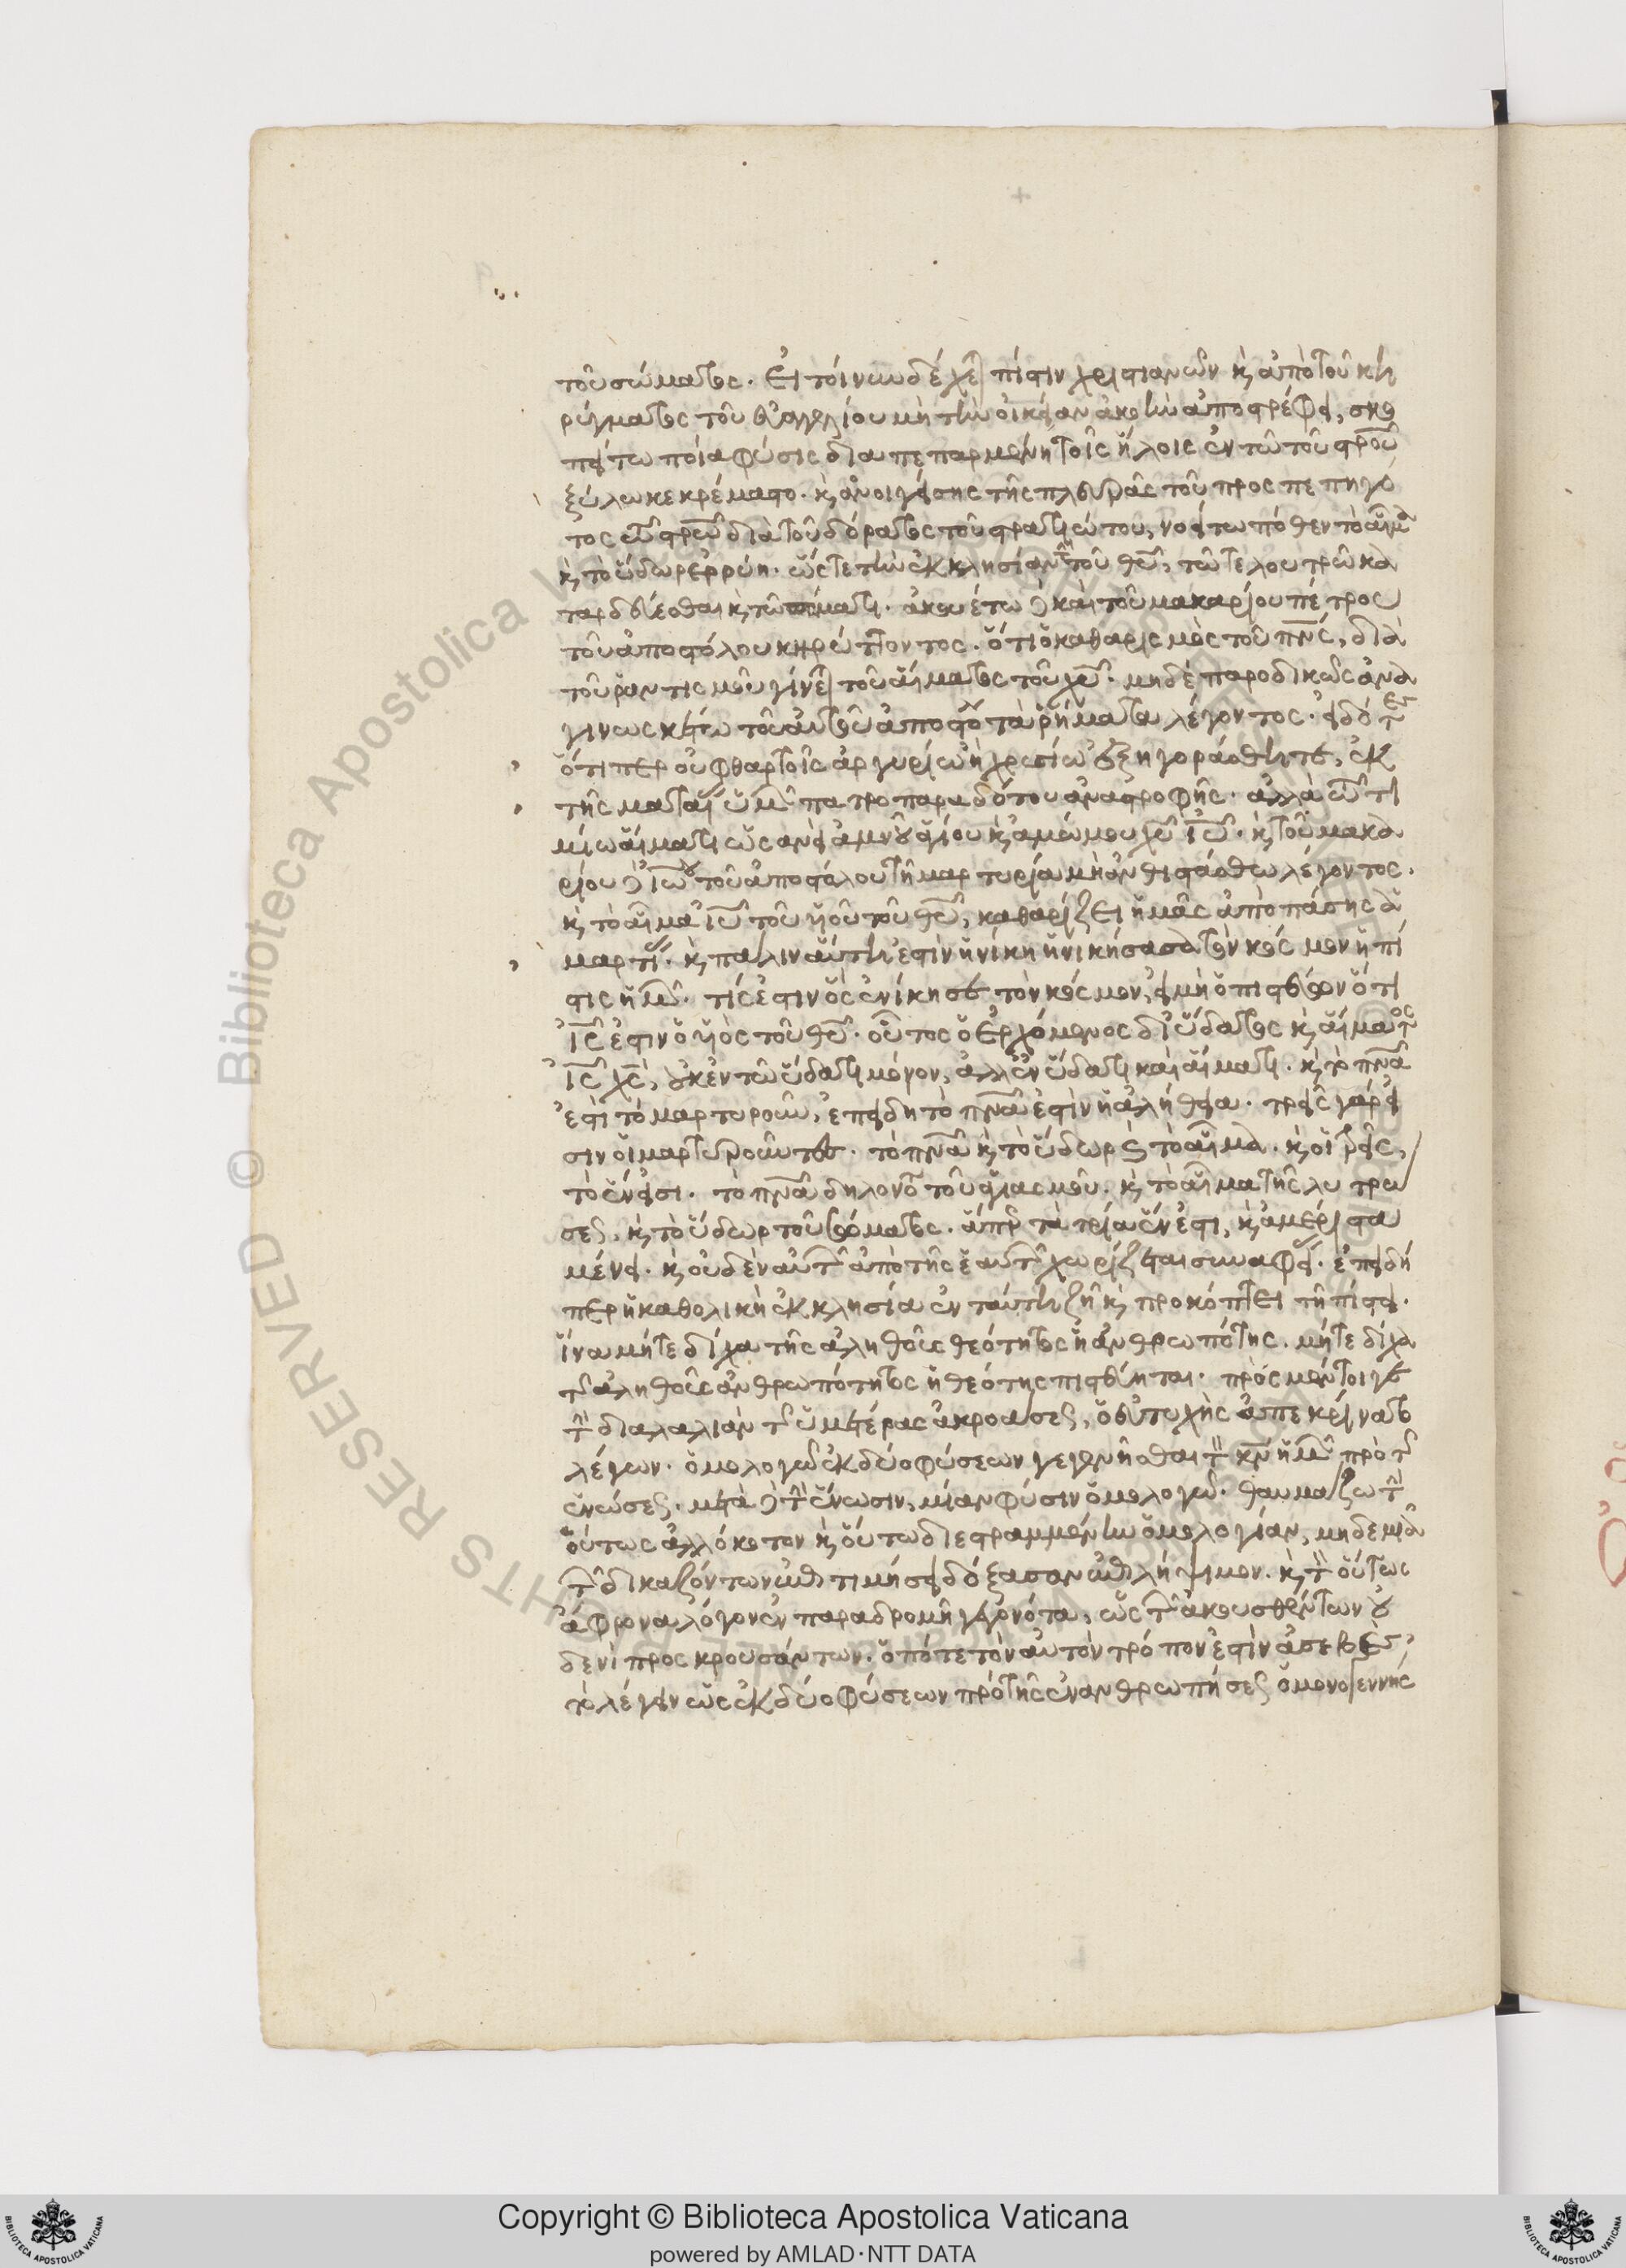 τοῦ σώματος. Εἰ τοίνυν δέχε πίστιν χριστιανῶν κ ἀπὸ τοῦ κη
ρύγματος τοῦ εὐαγγελίου μὴ τὴν οἰκείαν ἀκοὴν ἀποστρέφει, σκο
πείτω ποία φύσις διαπεπαρμένη τοῖς ἥλοις ἐν τῶ τοῦ στροῦ
ξύλω κεκρέμαστο. κ ἀνοιγείσης τῆς πλευρᾶς τοῦ προσπεπηγό
τος τῶ στρῶ διὰ τοῦ δόρατος τοῦ στρατιώτου, νοείτω πόθεν τὸ αἷμα
κ τὸ ὕδωρ ἐρρύη. ὥστε τὴν ἐκκλησίαν τὴν τοῦ θυ, τῶ τε λουτρῶ κα
ταρδεύεσθαι κ τῶ πόματι. ἀκουέτω δὲ καὶ τοῦ μακαρίου πέτρου
τοῦ ἀποστόλου κηρύττοντος. ὅτι ὁ καθαρισμὸς τοῦ πνς, διὰ
τοῦ ῥαντισμοῦ γίνε τοῦ αἵματος τοῦ χυ. μηδὲ παροδικῶς ἀνα
γινωσκέτω τοῦ αὐτοῦ ἀποστό τὰ ῥήματα λέγοντος. εἰδότες
ὅτιπερ οὐ φθαρτοῖς ἀργυρίω ἢ χρυσίω ἐξηγοράσθητε, ἐκ
τῆς ματαί ὑμ πατροπαραδότου ἀναστροφῆς. ἀλλὰ τῶ τι
μίω αἵματι ὡσανεὶ ἀμνοῦ ἁγίου κ ἀμώμου χυ ιυ. κ τοῦ μακα
ρίου δὲ ἰω τοῦ ἀποστόλου τῆ μαρτυρία μὴ ἀνθιστάσθω λέγοντος.
κ τὸ αἷμα ιυ τοῦ υἱοῦ τοῦ θυ, καθαρίζει ἡμᾶς ἀπὸ πάσης ἁ
μαρτί. κ πάλιν αὕτη ἐστὶν ἡ νίκη ἡ νικήσασα τὸν κόσμον ἡ πί
στις ἡμ. τίς ἐστιν ὃς ἐνίκησε τὸν κόσμον, εἰ μὴ ὁ πιστεύων ὅτι
ις ἐστὶν ὁ υἱὸς τοῦ θυ. οὗτος ὁ ἐρχόμενος δι' ὕδατος κ αἵματος
ις χς, οὐκ ἐν τῶ ὕδατι μόνον, ἀλλ' ἐν ὕδατι καὶ αἵματι. κ τὸ πνα
ἐστὶ τὸ μαρτυροῦν, ἐπειδὴ τὸ πνα ἐστὶν ἡ ἀλήθεια. τρεῖς γάρ εἰ
σιν οἱ μαρτυροῦντες. τὸ πνα κ τὸ ὕδωρ κ τὸ αἷμα. κ οἱ τρεῖς,
τὸ ἕν εἰσι. τὸ πνα δηλονό τοῦ ἁγιασμοῦ. κ τὸ αἷμα τῆς λυτρώ
σεως, κ τὸ ὕδωρ τοῦ βαπτίσματος. ἅπερ τὰ τρία ἕν ἐστι, κ ἀμέριστα
μένει. κ οὐδὲν αὐτῶν ἀπὸ τῆς ἑαυτῶν χωρίζεται συναφεί. ἐπειδή
περ ἡ καθολικὴ ἐκκλησία ἐν ταύτη ζῆ κ προκόπτει τῆ πίστει.
ἵνα μήτε δίχα τῆς ἀληθοῦς θεότητος ἡ ἀνθρωπότης. μήτε δίχα
τῆς ἀληθοῦς ἀνθρωπότητος ἡ θεότης πιστεύηται. πρὸς μέντοιγε
τὴν διαλαλιὰν τῆς ὑμετέρας ἀκροάσεως, ὁ εὐτυχὴς ἀπεκρίνατο
λέγων. ὁμολογῶ ἐκ δύο φύσεων γεγενῆσθαι τὸν κν ἡμ πρὸ τῆς
ἑνώσεως. μετὰ δὲ τὴν ἕνωσιν, μίαν φύσιν ὁμολογῶ. θαυμάζω τὴν
οὕτως ἀλλόκοτον κ οὕτω διεστραμμένην ὁμολογίαν, μηδεμιᾶ
τῶν δικαζόντων ἐπιτιμήσει δόξασαν ἐπιλήψιμον. κ τὸν οὕτως
ἄφρονα λόγον ἐν παραδρομῆ γεγονότα, ὡς τῶν ἀκουσθέντων οὐ
δενὶ προσκρουσάντων. ὁπότε τὸν αὐτὸν τρόπον ἐστὶν ἀσεβὲς
τὸ λέγειν ὡς ἐκ δύο φύσεων πρὸ τῆς ἐνανθρωπήσεως ὁ μονογεννής